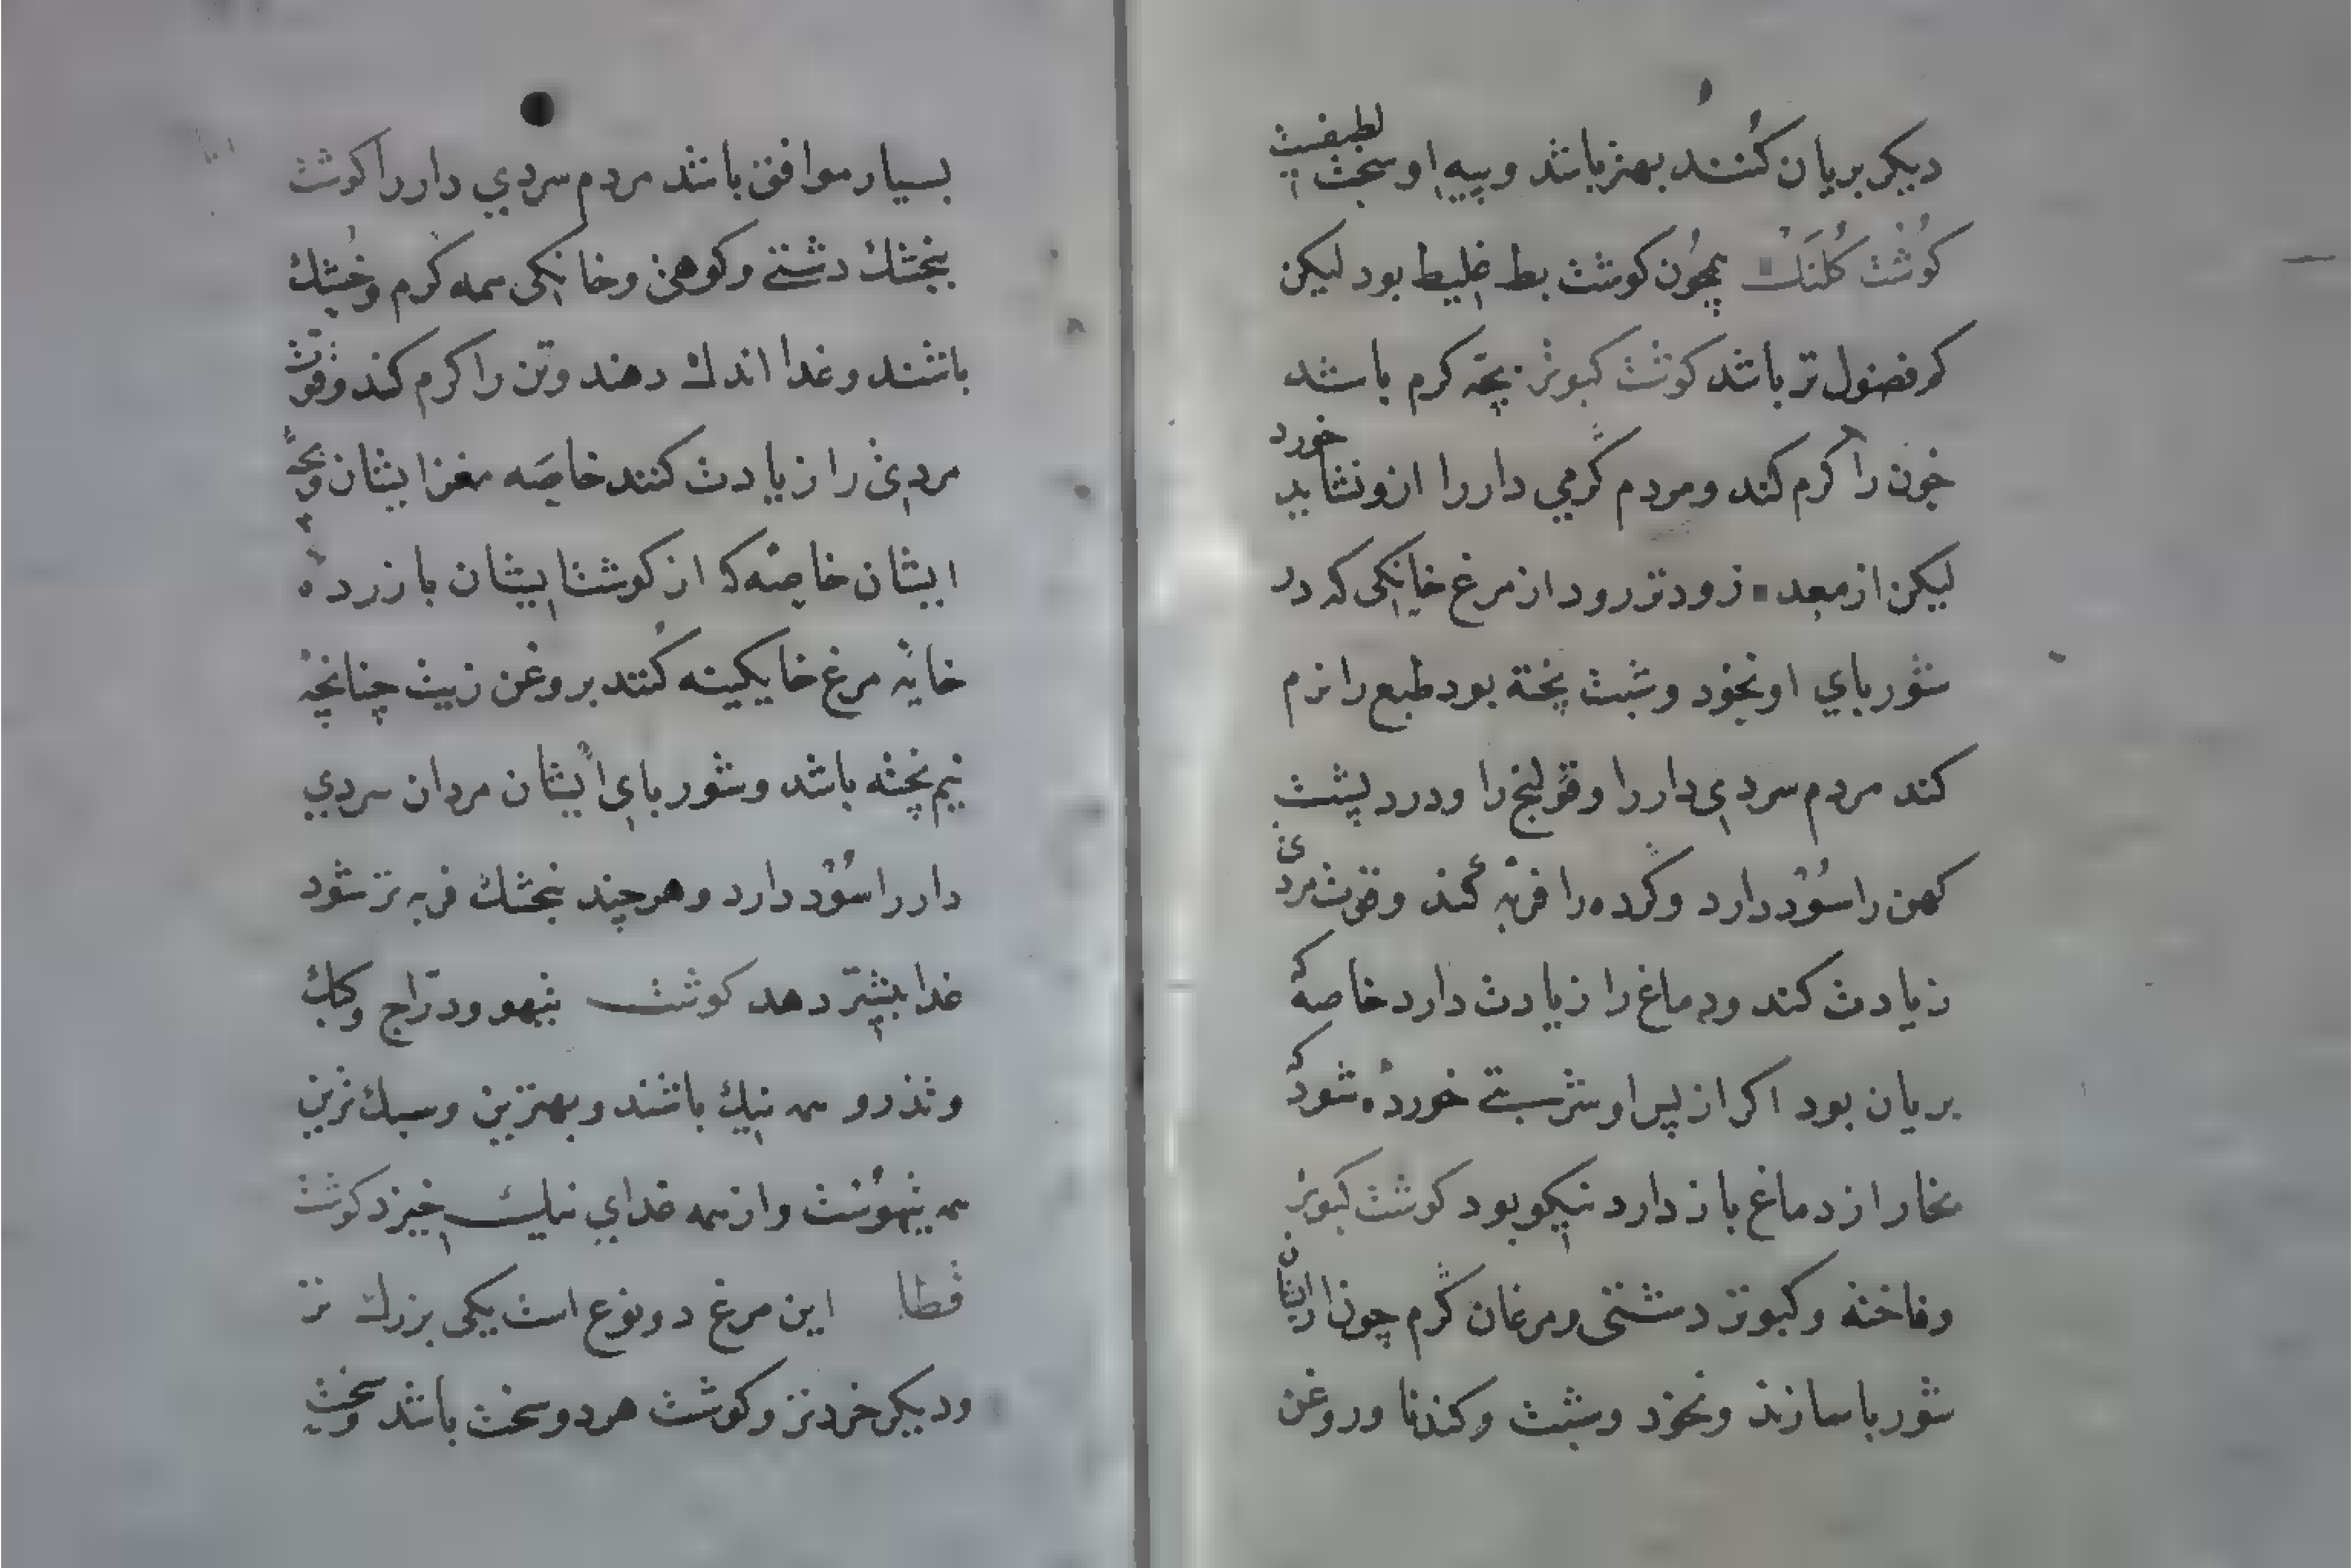 دیکر بریان کُنند بهتر باشد و پیه او سخت لطیفست
کوُشت کُلَنک همچُون کوشت بط غلیظ بود لیکن
کم فضول تر باشد کوشت کبوتر بچّه کرم باشد
خون را کرم کند و مردم کرمي دار را ازو نشاید خورد
لیکن از معده زودتر رود از مرغ خانکی که در
شوربای او نخود و شبت پخته بود طبع را نرم
کند مردم سردی دار را و قولنج را و درد پشت
کهن را سُود دارد و کرده را فربه کُند و قوت مردی
زیادت کند و دماغ را زیادت دارد خاصه که
بریان بود اکر از پس او شربتے خورده شود که
بخار از دماغ باز دارد نیکو بود کوشت کبوتر
و فاخته و کبوتر دشتی و مرغان کرم چون از ایشان
شوربا سازند و نخود و شبت و کندنا و روغن
بسیار موافق باشد مردم سردي دار را کوشت
بنجشك دشتے و کوهی و خانکی همه کرم و خشك
باشند و غدا اندك دهند و تن را کرم کند و قوت
مردی را زیادت کنند خاصّه مغز ایشان و بچّه
ایشان خاصّه که از کوشت ایشان با زرده
خایه مرغ خایکینه کُنند بروغن زیت چنانچه
نیم پخته باشد و شوربای ایشان مردان سردي
دار را سُود دارد و هرچند بنجشك فربه تر شود
غدا بیشتر دهد کوشت تیهو و درّاج و کبك
و تذرو همه نیك باشند و بهترین و سبك ترین
همه تیهُوست و از همه غداي نیك خیزد کوشت
قطا این مرغ دو نوع است یکی بزرك تر
و دیکر خردتر و کوشت هر دو سخت باشد و سخت